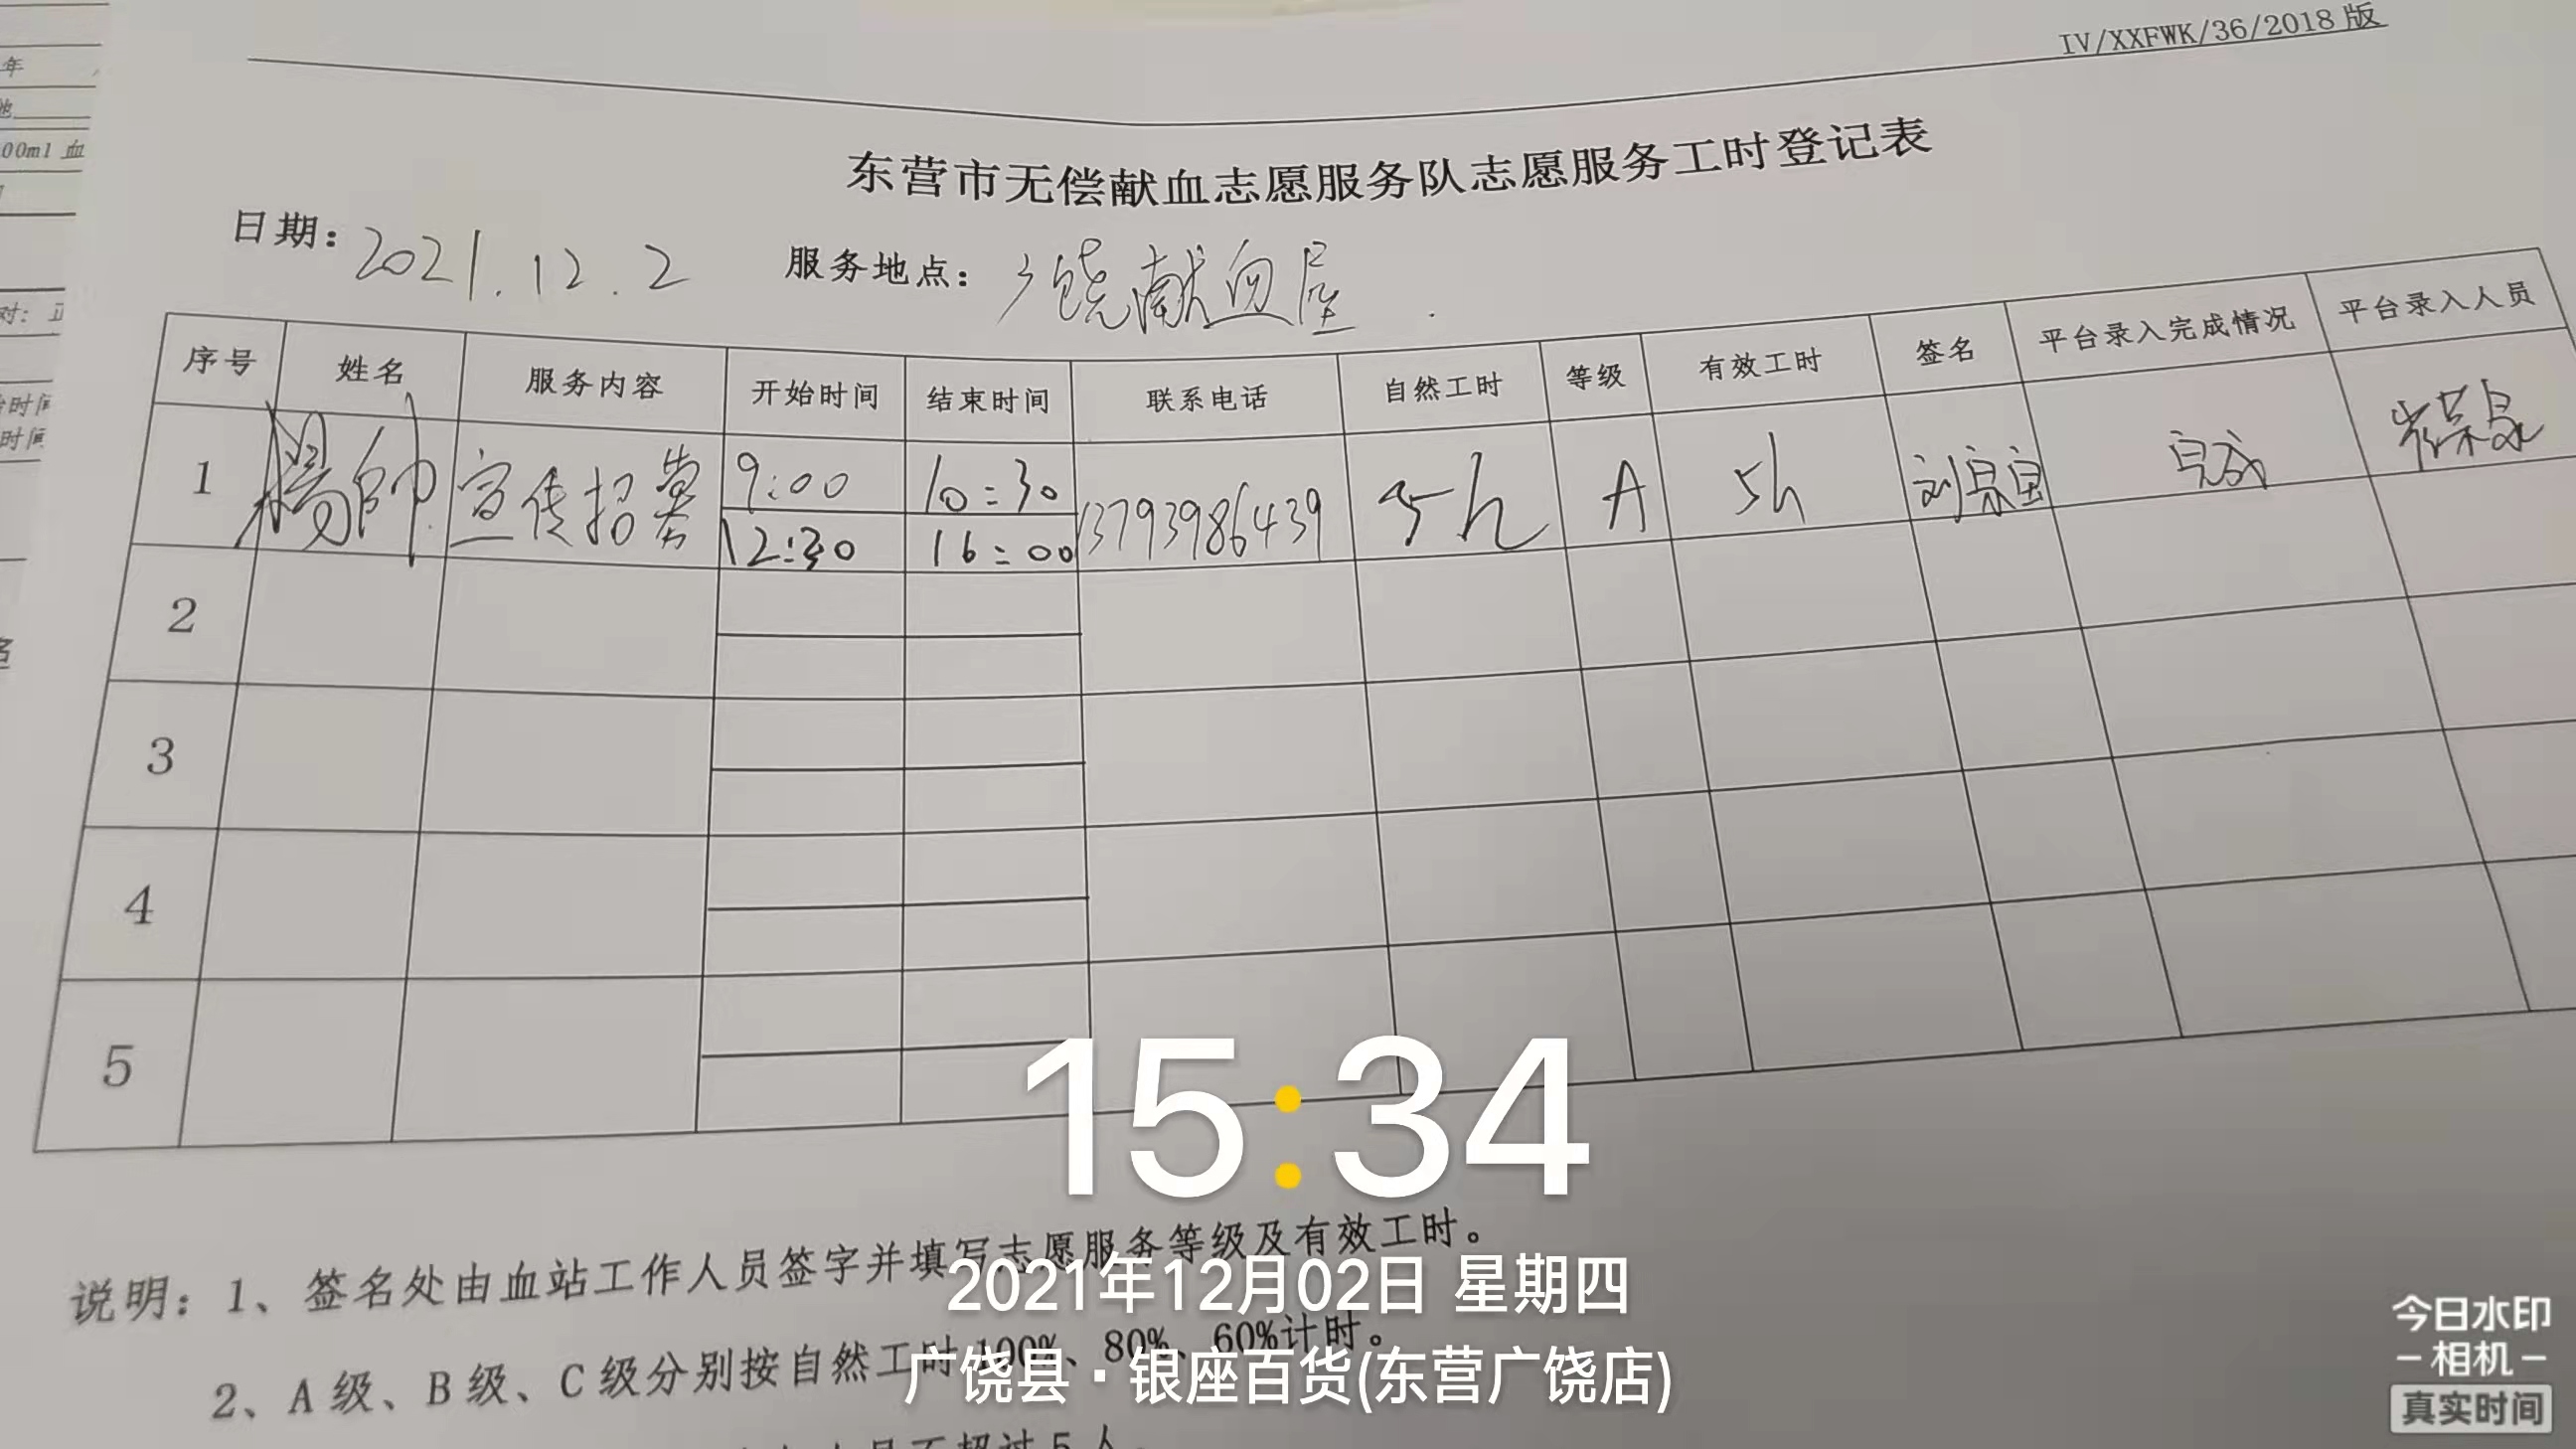 年
他
00ml 血
对：正
时间
时间
名
IV/XXFWK/36/2018版
东营市无偿献血志愿服务队志愿服务工时登记表
日期：2021.12.2 服务地点：广饶献血屋
序号 姓名 服务内容 开始时间 结束时间 联系电话 自然工时 等级 有效工时 签名 平台录入完成情况 平台录入人员
1 楊帥 宣传招募 9:00 10:30 13793986439 5h A 5h 完成
12:30 16:00
2
3
4
5
15:34
说明：1、签名处由血站工作人员签字并填写志愿服务等级及有效工时。
2021年12月02日 星期四
2、A级、B级、C级分别按自然工时100%、80%、60%计时。
广饶县·银座百货(东营广饶店)
不超过5人。
今日水印
相机
真实时间